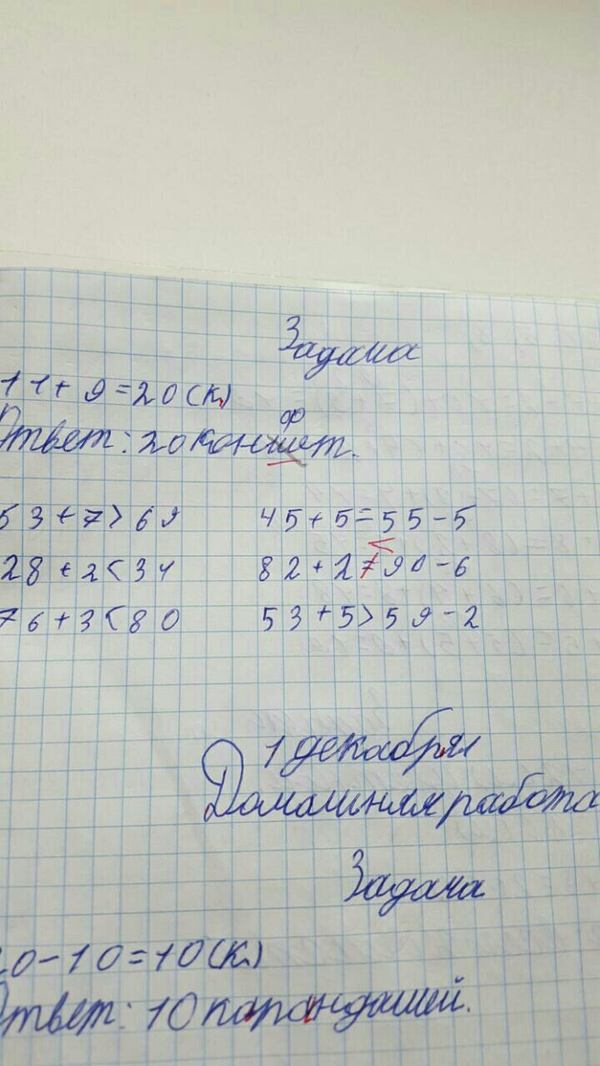 Задача
11+9=20(к)
ф
Ответ: 20 коншет.
53+7>69 45+5=55-5
<
28+2<34 82+2=90-6
76+3<80 53+5>59-2
1 декабря
Домашняя работа
Задача
20-10=10(к.)
Ответ: 10 карандашей.